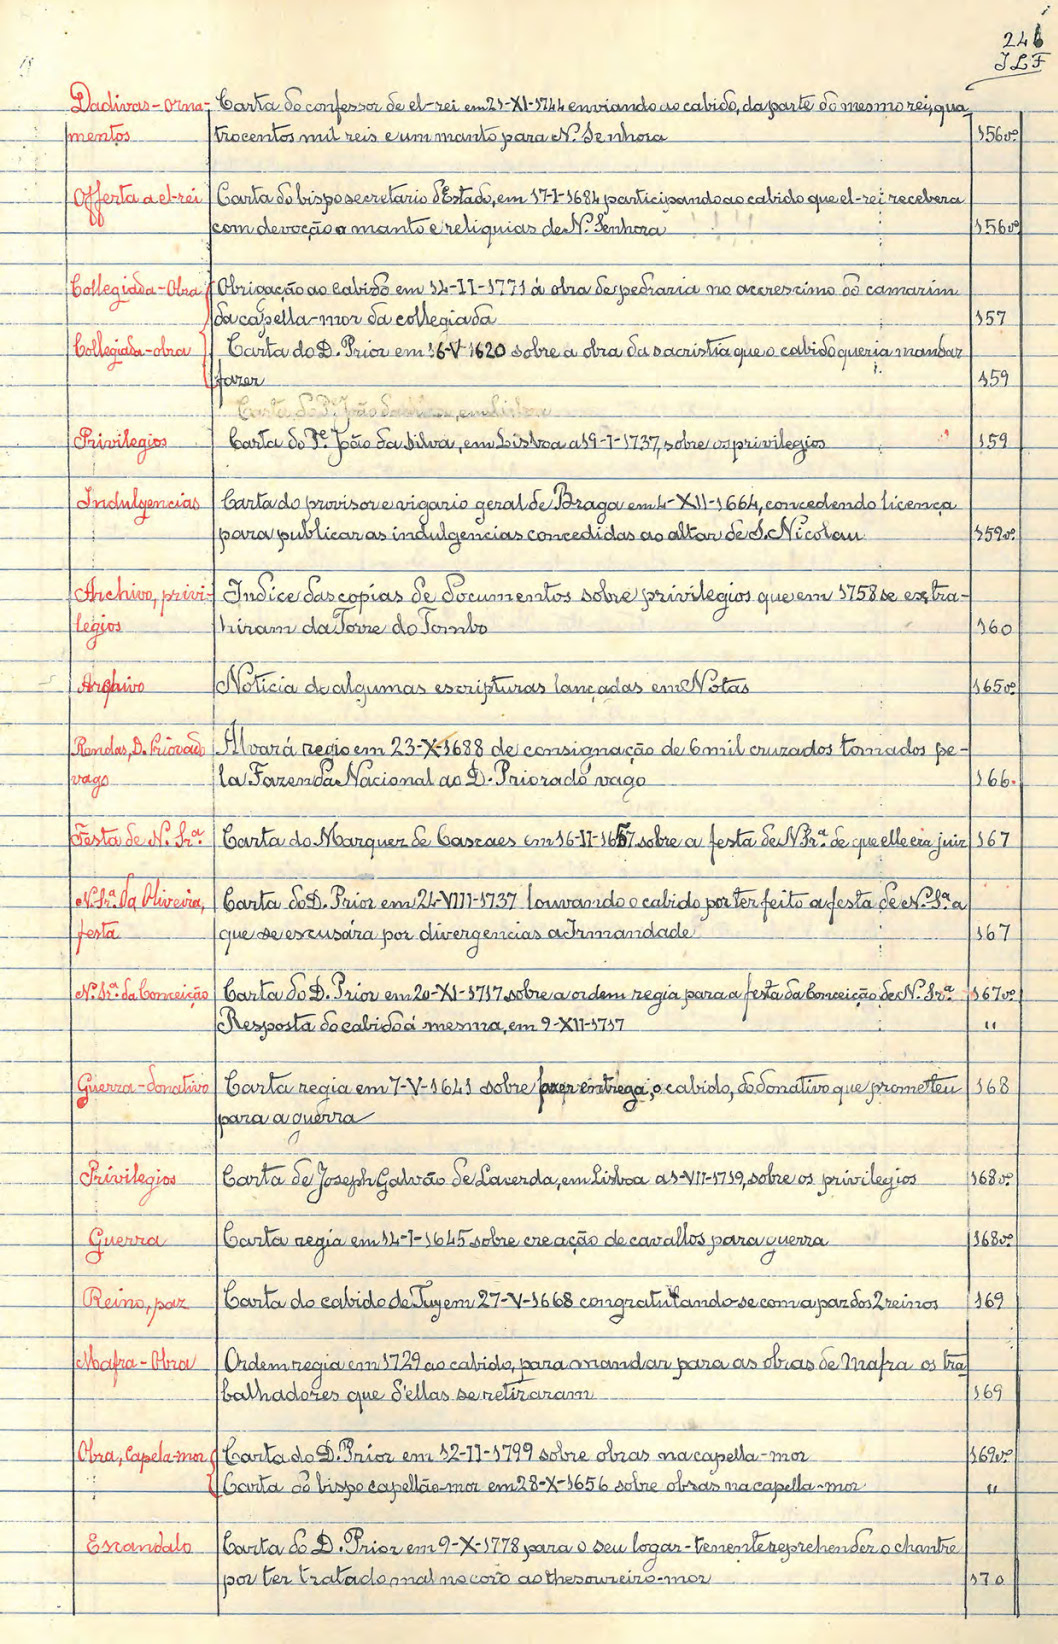 246
JLF
Dadivas - Orna- Carta do confessor de el-rei em 21-XI-1744 enviando ao cabido, da parte do mesmo rei, qua
mentos trocentos mil reis e um manto para N.ª Senhora 156vº
Offerta a el-rei Carta do bispo secretario d'Estado, em 17-I-1684 participando ao cabido que el-rei recebera
com devoção o manto e reliquias de N.ª Senhora 156vº
Collegiada - Obra Obrigação ao cabido em 14-II-1771 á obra de pedraria no accrescimo do camarim
da capella-mor da collegiada 157
Collegiada - obra Carta do D. Prior em 16-V-1620 sobre a obra da sacristia que o cabido queria mandar
fazer 159
Privilegios Carta do Pe. João da Silva, em Lisboa a 19-I-1737, sobre os privilegios 159
Indulgencias Carta do provisor e vigario geral de Braga em 4-XII-1664, concedendo licença
para publicar as indulgencias concedidas ao altar de S. Nicolau 159vº
Archivo, privi- Indice das copias de documentos sobre privilegios que em 1758 se extra-
legios hiram da Torre do Tombo 160
Archivo Noticia de algumas escripturas lançadas em Notas 165vº
Rendas, D. Priorado Alvará regio em 23-X-1688 de consignação de 6 mil cruzados tomados pe-
vago la Fazenda Nacional ao D. Priorado vago 166.
Festa de N. Sr.ª Carta do Marquez de Cascaes em 16-II-1657 sobre a festa de N. Sr.ª de que elle era juiz 167
N. Sr.ª da Oliveira, Carta do D. Prior em 24-VIII-1737 louvando o cabido por ter feito a festa de N.ª S.ª a
festa que se escusára por divergencias a Irmandade 167
N.ª Sr.ª da Conceição Carta do D. Prior em 20-XI-1717 sobre a ordem regia para a festa da Conceição de N.ª Sr.ª 167vº
Resposta do cabido á mesma, em 9-XII-1717 "
Guerra - donativo Carta regia em 7-V-1641 sobre fazer entrega, o cabido, do donativo que prometteu 168
para a guerra
Privilegios Carta de Joseph Galvão de Lacerda, em Lisboa a 1-VII-1719, sobre os privilegios 168vº
Guerra Carta regia em 14-I-1645 sobre creação de cavallos para guerra 168vº
Reino, paz Carta do cabido de Tuy em 27-V-1668 congratulando-se com a paz dos 2 reinos 169
Mafra - Obra Ordem regia em 1729 ao cabido, para mandar para as obras de Mafra os tra
balhadores que d'ellas se retiraram 169
Obra, Capela-mor Carta do D. Prior em 12-II-1799 sobre obras na capella-mor 169vº
Carta do bispo capellão-mor em 28-X-1656 sobre obras na capella-mor "
Escandalo Carta do D. Prior em 9-X-1778 para o seu logar-tenente reprehender o chantre
por ter tratado mal no coro ao thesoureiro-mor 170